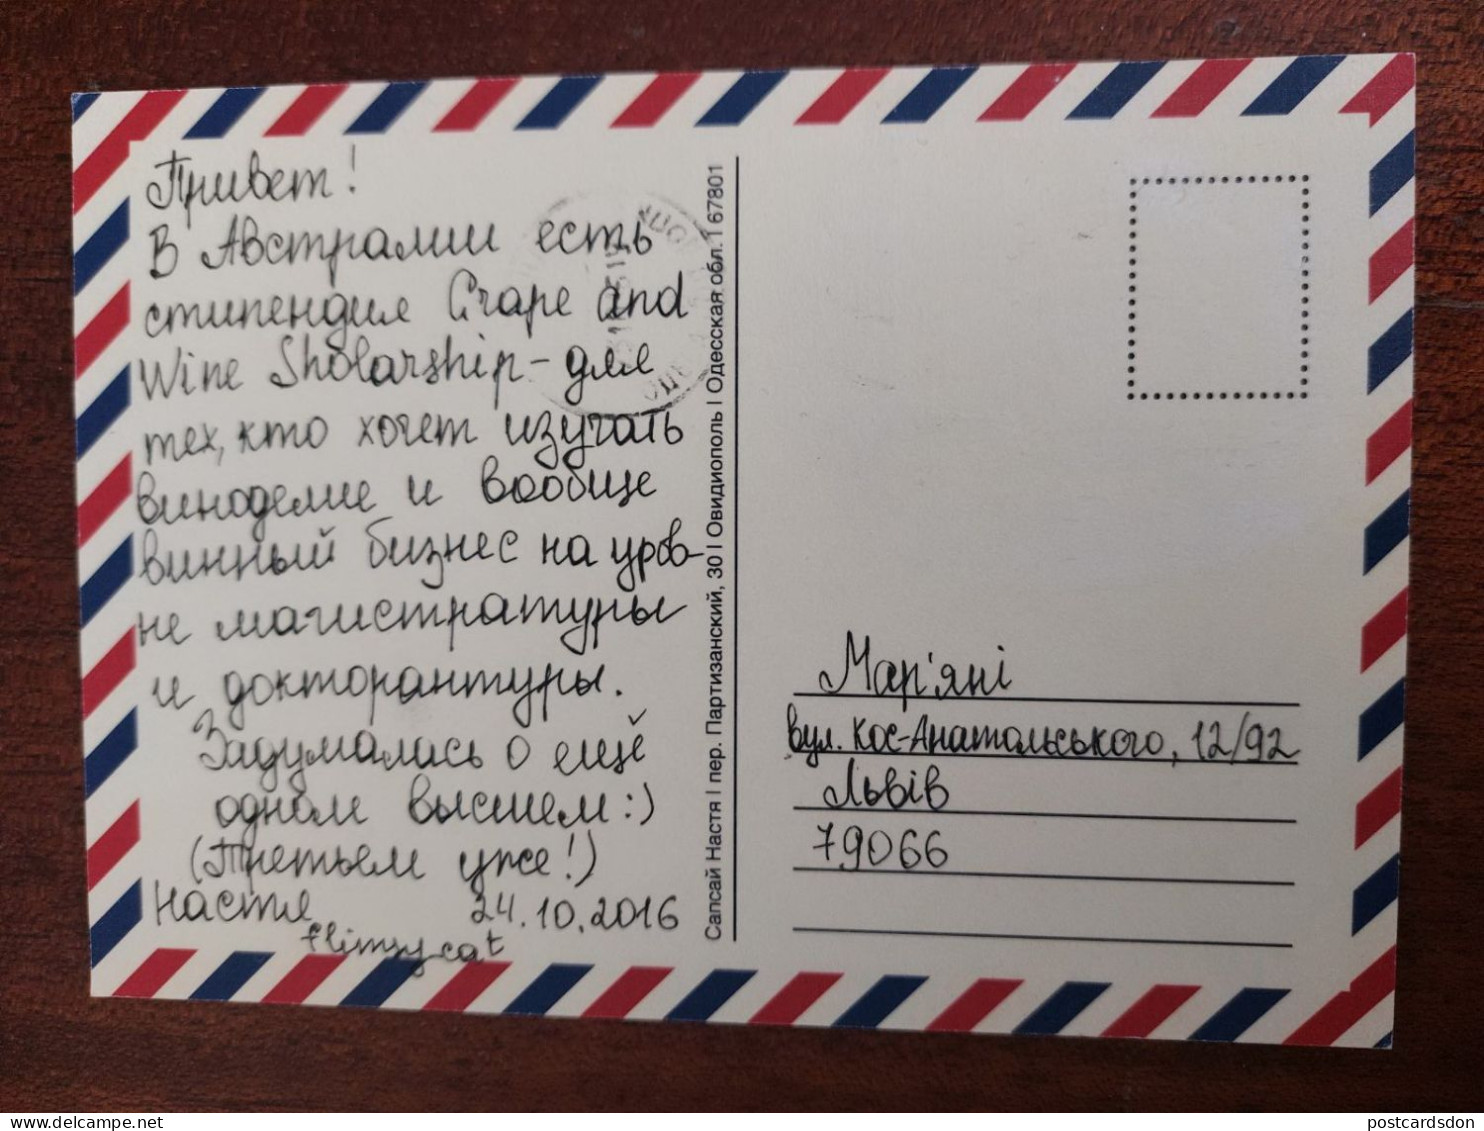 Привет!
В Австралии есть
стипендия Grape and
Wine Sholarship - для
тех, кто хочет изучать
виноделие и вообще
винный бизнес на уров-
не магистратуры
и докторантуры.
Задумалась о ещё
одном высшем :)
(Третьем уже!)
Настя 24.10.2016
flimsy_cat
Сапсай Настя | пер. Партизанский, 30 | Овидиополь | Одесская обл. | 67801
Мар'яні
вул. Кос-Анатольського, 12/92
Львів
79066
delcampe.net
postcardsdon